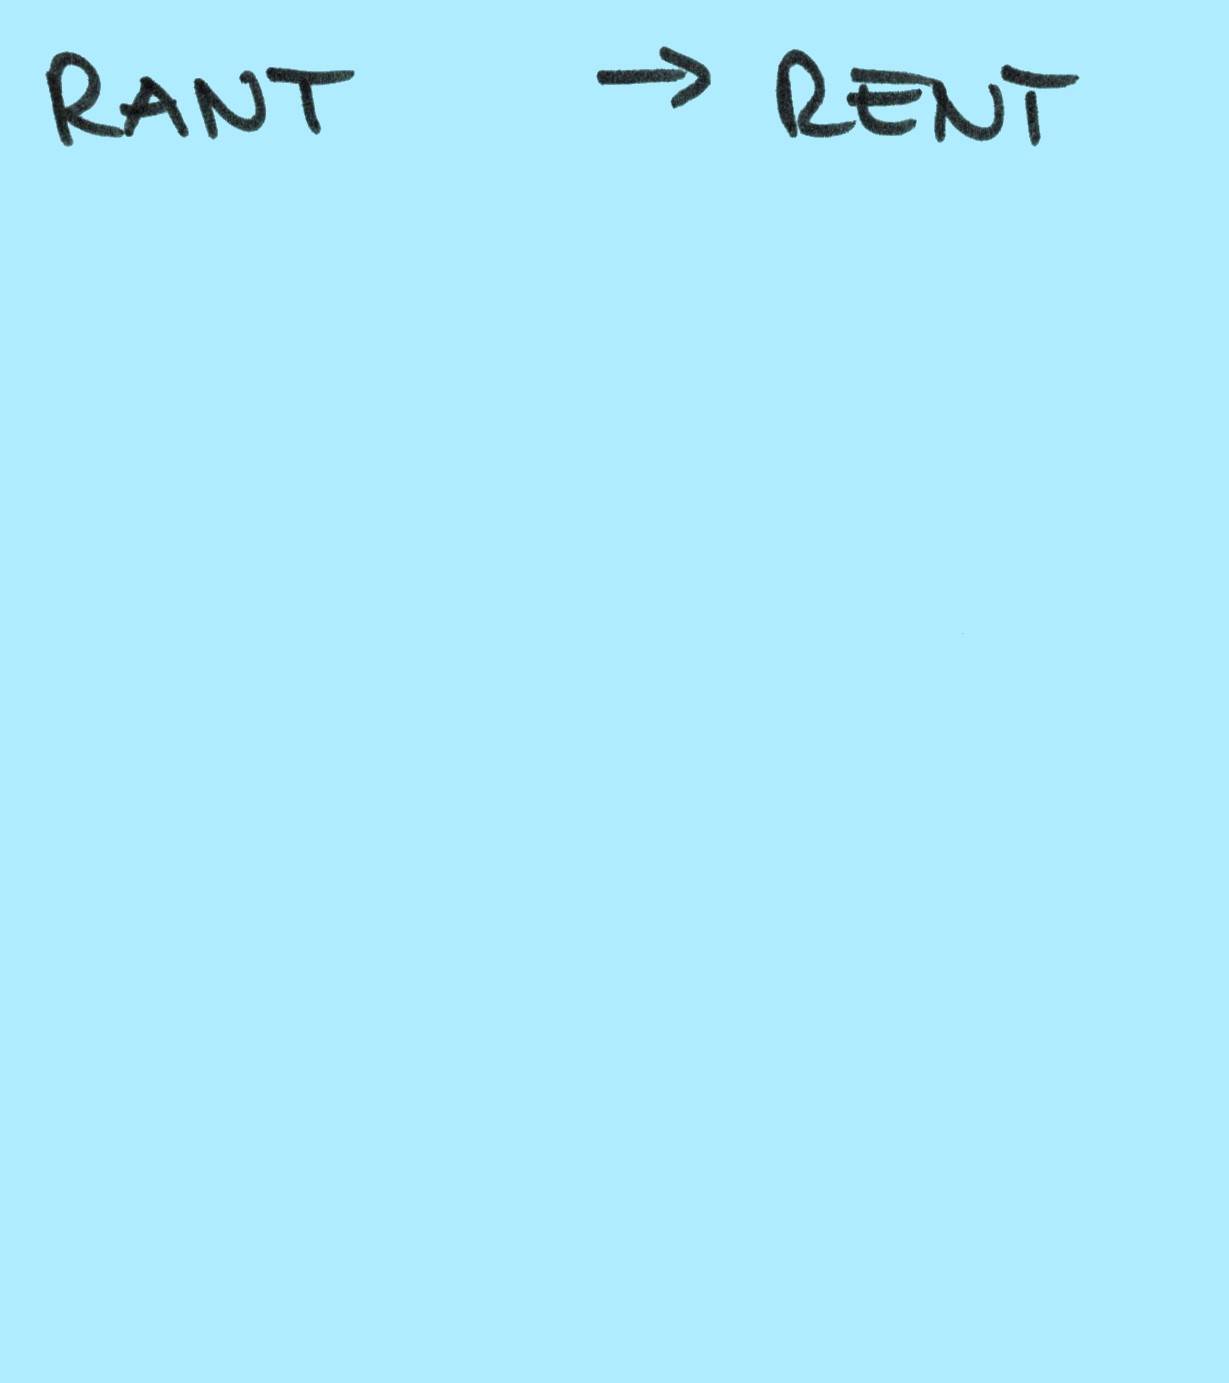 RANT → RENT